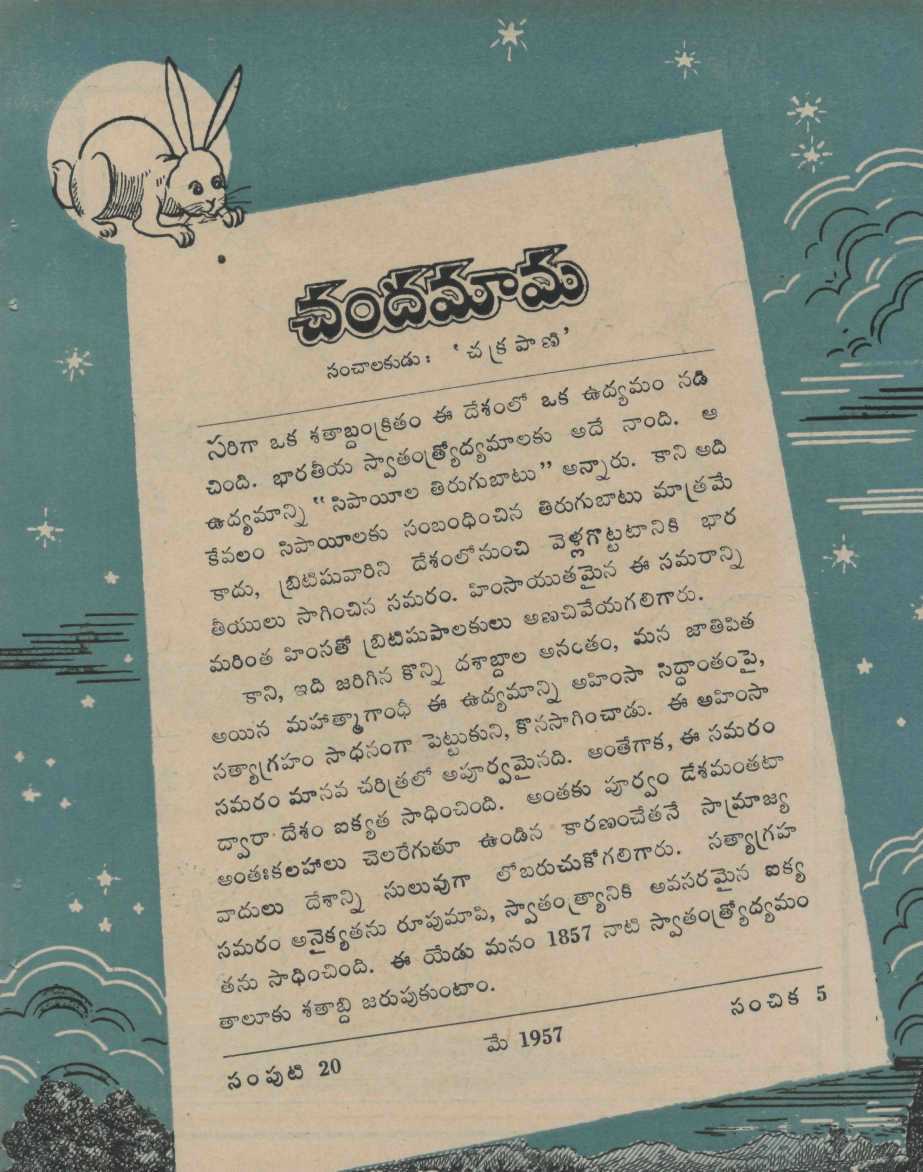 చందమామ
సంచాలకుడు : ‘చక్రపాణి’
సరిగా ఒక శతాబ్దంక్రితం ఈ దేశంలో ఒక ఉద్యమం నడి
చింది. భారతీయ స్వాతంత్ర్యోద్యమాలకు అదే నాంది. ఆ
ఉద్యమాన్ని “సిపాయీల తిరుగుబాటు” అన్నారు. కాని అది
కేవలం సిపాయీలకు సంబంధించిన తిరుగుబాటు మాత్రమే
కాదు, బ్రిటిషువారిని దేశంలోనుంచి వెళ్లగొట్టటానికి భార
తీయులు సాగించిన సమరం. హింసాయుతమైన ఈ సమరాన్ని
మరింత హింసతో బ్రిటిషుపాలకులు అణచివేయగలిగారు.
కాని, ఇది జరిగిన కొన్ని దశాబ్దాల అనంతం, మన జాతిపిత
అయిన మహాత్మాగాంధీ ఈ ఉద్యమాన్ని అహింసా సిద్ధాంతంపై,
సత్యాగ్రహం సాధనంగా పెట్టుకుని, కొనసాగించాడు. ఈ అహింసా
సమరం మానవ చరిత్రలో అపూర్వమైనది. అంతేగాక, ఈ సమరం
ద్వారా దేశం ఐక్యత సాధించింది. అంతకు పూర్వం దేశమంతటా
అంతఃకలహాలు చెలరేగుతూ ఉండిన కారణంచేతనే సామ్రాజ్య
వాదులు దేశాన్ని సులువుగా లోబరుచుకోగలిగారు. సత్యాగ్రహ
సమరం అనైక్యతను రూపుమాపి, స్వాతంత్ర్యానికి అవసరమైన ఐక్య
తను సాధించింది. ఈ యేడు మనం 1857 నాటి స్వాతంత్ర్యోద్యమం
తాలూకు శతాబ్ది జరుపుకుంటాం.
సంపుటి 20 మే 1957 సంచిక 5